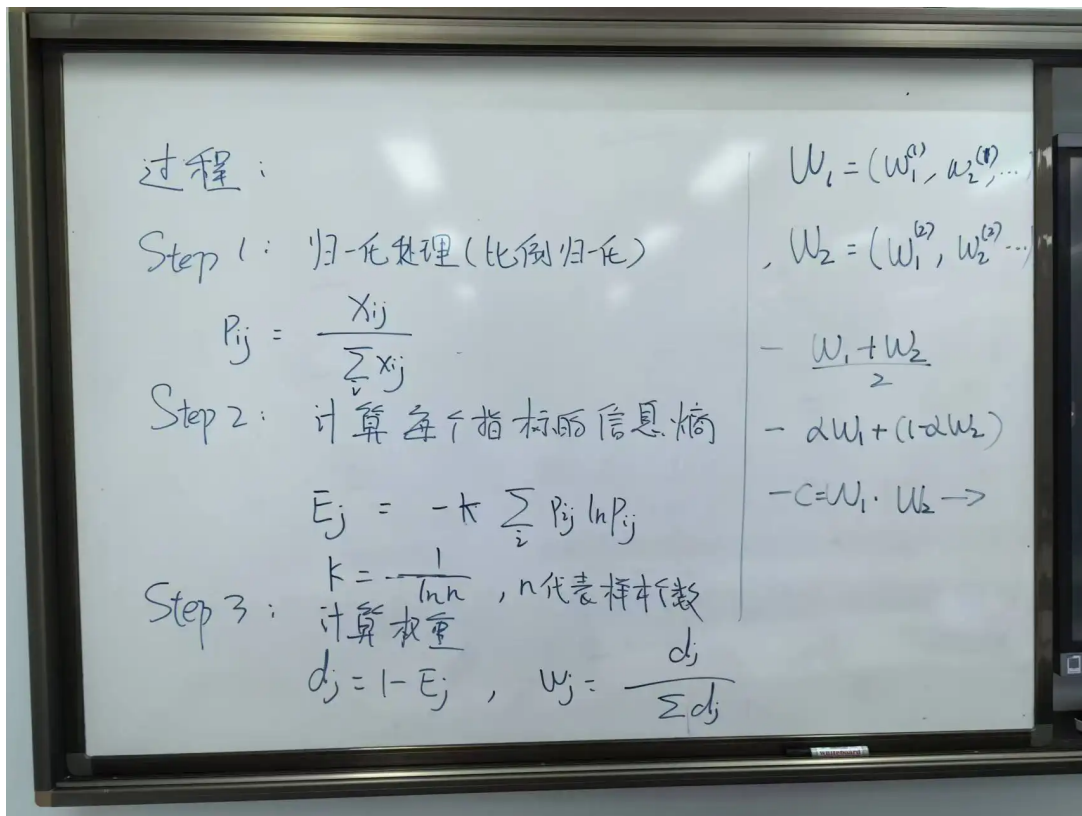 过程：
Step 1：归一化处理（比例归一化）
Pij = Xij / Σi Xij
Step 2：计算每个指标的信息熵
Ej = -k Σi Pij ln Pij
k = 1 / ln n ，n代表样本个数
Step 3：计算权重
dj = 1 - Ej ， Wj = dj / Σ dj
W1 = (W1^(1), W2^(1), ...
, W2 = (W1^(2), W2^(2) ...
- (W1 + W2) / 2
- αW1 + (1-αW2)
- C = W1 · W2 →